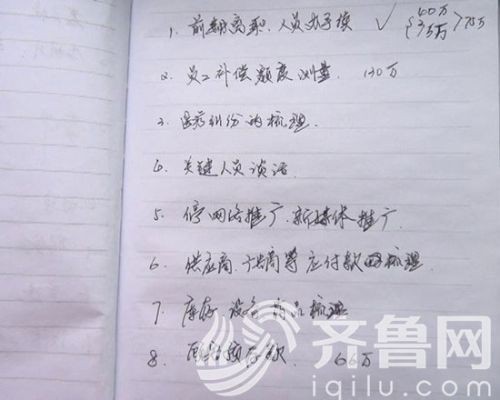 1. 前期离职人员办手续 ✓ {40万 35万 > 75万
2. 员工补偿额度测量. 130万
3. 医药纠纷的梳理.
4. 关键人员谈话
5. 停网络推广、新媒体推广
6. 供应商、广告商等应付款的梳理.
7. 库存、设备、药品梳理
8. 预存款. 66万
齐鲁网
iqilu.com